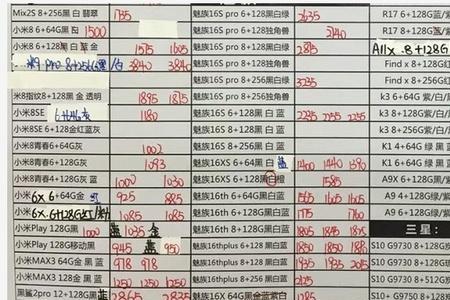 Mix2S 8+256 黑 白 翡翠 1735
小米8 6+64G黑 1500
小米8 6+128黑 白 金 1575 1605
米9 pro 8+256G黑/白 3840 3840
米8指纹8+128黑 金 透明 1895 1875
小米8SE 6+64G灰 1180
小米8SE 6+128金红蓝灰
小米8青春4+64G灰 1002
小米8青春6+128G灰 1093
小米8青春6+64G蓝 1000 1030
小米6X 6+64G金 红 925 885
小米6X 6+128G红/粉 1085 1085
小米Play 128G黑 1000 蓝 1035 金
小米Play 128移动黑 945 蓝 950
小米MAX3 64G金 黑 蓝 978 978
小米MAX3 128金 黑 蓝 1250 1250
黑鲨2pro 12+128G黑 2865 蓝 2835
魅族16S pro 6+128黑白绿 2635
魅族16S pro 6+128独角兽 2740
魅族16S pro 8+128黑白绿 2815
魅族16S pro 8+128独角兽
魅族16S pro 8+256黑白绿
魅族16S pro 8+256独角兽
魅族16S 6+128 黑 白 蓝 2235 2255 2255
魅族16S 8+128 黑 白 蓝
魅族16S 8+256 黑 白 蓝
魅族16XS 6+64 黑 白 蓝 1400 1440 1390
魅族16XS 6+128黑白橙 1585
魅族16th 6+64G黑白蓝 1565 1605 1605
魅族16th 6+128G黑白蓝 1775 1760
魅族16th 8+128G黑白蓝 1805 1845 1815
魅族16thplus 6+128 黑白 1850 1850 1818
魅族16thplus 8+128 黑白 1935 1935 2015
魅族16thplus 8+256 黑白 2125
魅族16X 64G黑金蓝白
R17 6+128G蓝/
R17 8+128G紫/
A11x 8+128G
Find x 8+128G
Find x 8+256G
k3 6+64G 紫/白/
k3 6+128G紫/白
k3 8+128G紫/白
K1 4+64G 绿 黑
K1 6+64G 绿 黑 蓝
A9X 6+128G黑/
A9 4+128G绿/紫
A9 6+128G绿/紫
三星
S10 G9730 8+128G
S10 G9730 8+512G
S10+ G9750 8+128